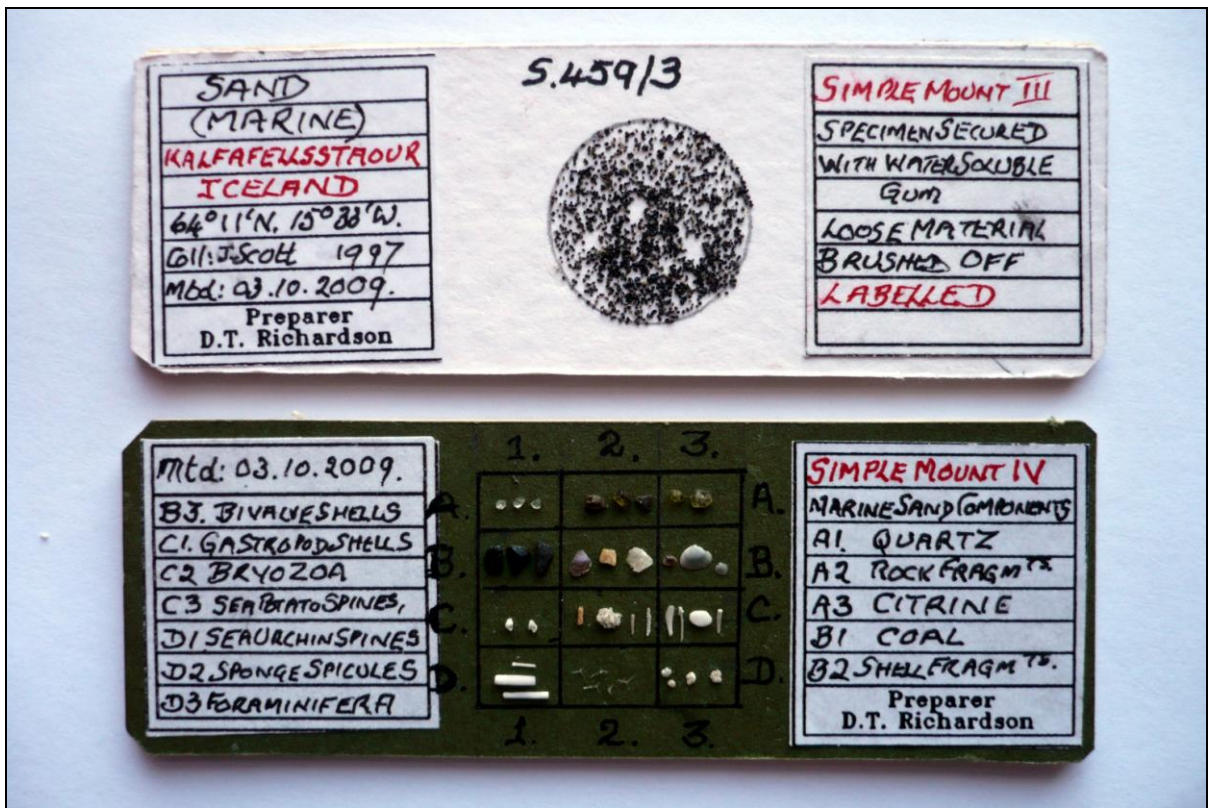 SAND
(MARINE)
KALFAFELLSSTAOUR
ICELAND
64°11'N. 15°38'W.
Coll: J. Scott 1997
Mtd: 03.10.2009.
Preparer
D.T. Richardson
S.459/3
SIMPLE MOUNT III
SPECIMEN SECURED
WITH WATER SOLUBLE
GUM
LOOSE MATERIAL
BRUSHED OFF
LABELLED
Mtd: 03.10.2009.
B3. BIVALVE SHELLS
C1. GASTROPOD SHELLS
C2 BRYOZOA
C3 SEA POTATO SPINES,
D1 SEA URCHIN SPINES
D2 SPONGE SPICULES
D3 FORAMINIFERA
1. 2. 3.
A. A.
B. B.
C. C.
D. D.
1. 2. 3.
SIMPLE MOUNT IV
MARINE SAND COMPONENTS
A1 QUARTZ
A2 ROCK FRAGMTS.
A3 CITRINE
B1 COAL
B2 SHELL FRAGMTS.
Preparer
D.T. Richardson